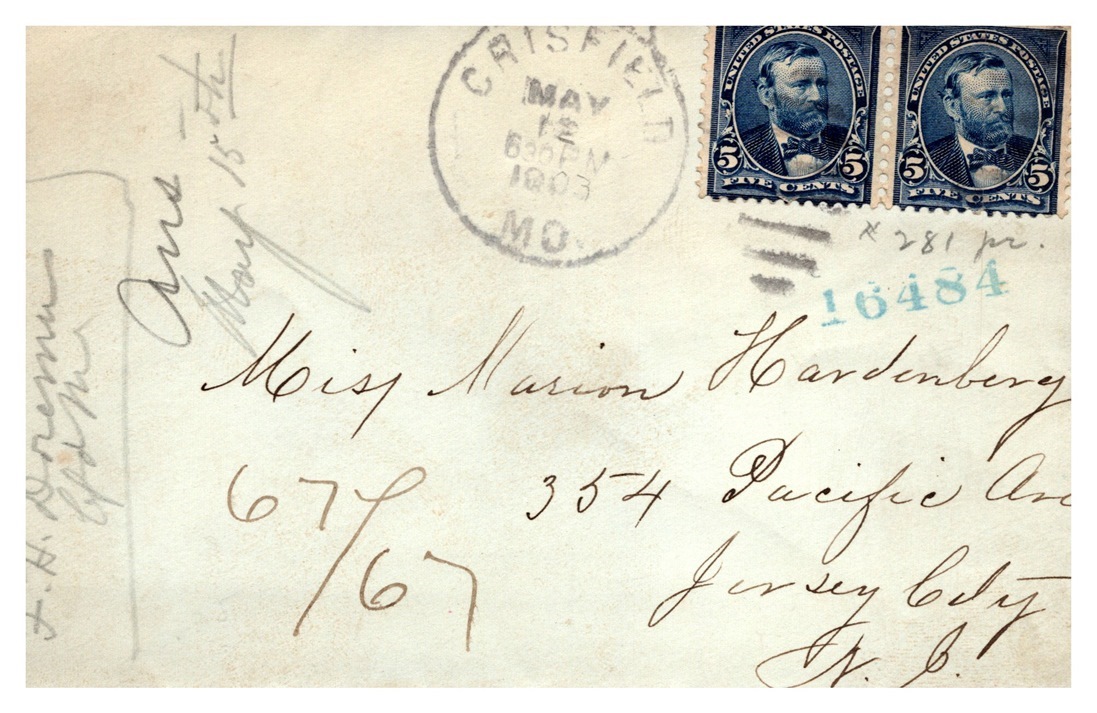 CRISFIELD
MAY
12
630PM
1903
MO.
UNITED STATES POSTAGE
5 5
FIVE CENTS
UNITED STATES POSTAGE
5 5
FIVE CENTS
# 281 pr.
16484
Ans
May 15th
Miss Marion Hardenberg
354 Pacific Ave
Jersey City
N. J.
67/67
F. H. Doremus